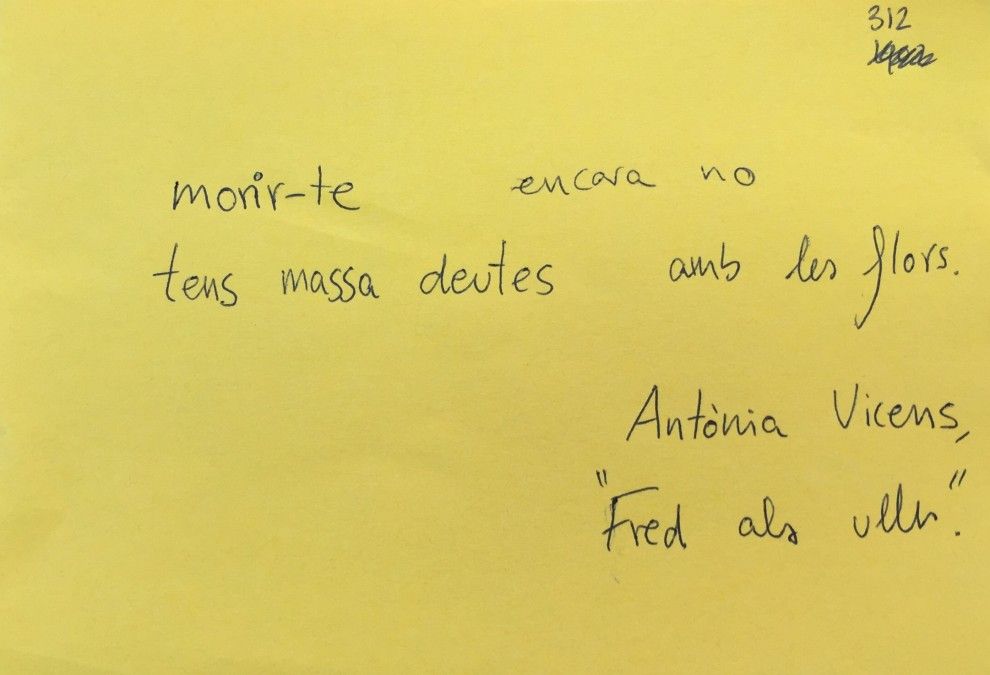 312
morir-te encara no
tens massa deutes amb les flors.
Antònia Vicens,
"Fred als ulls".